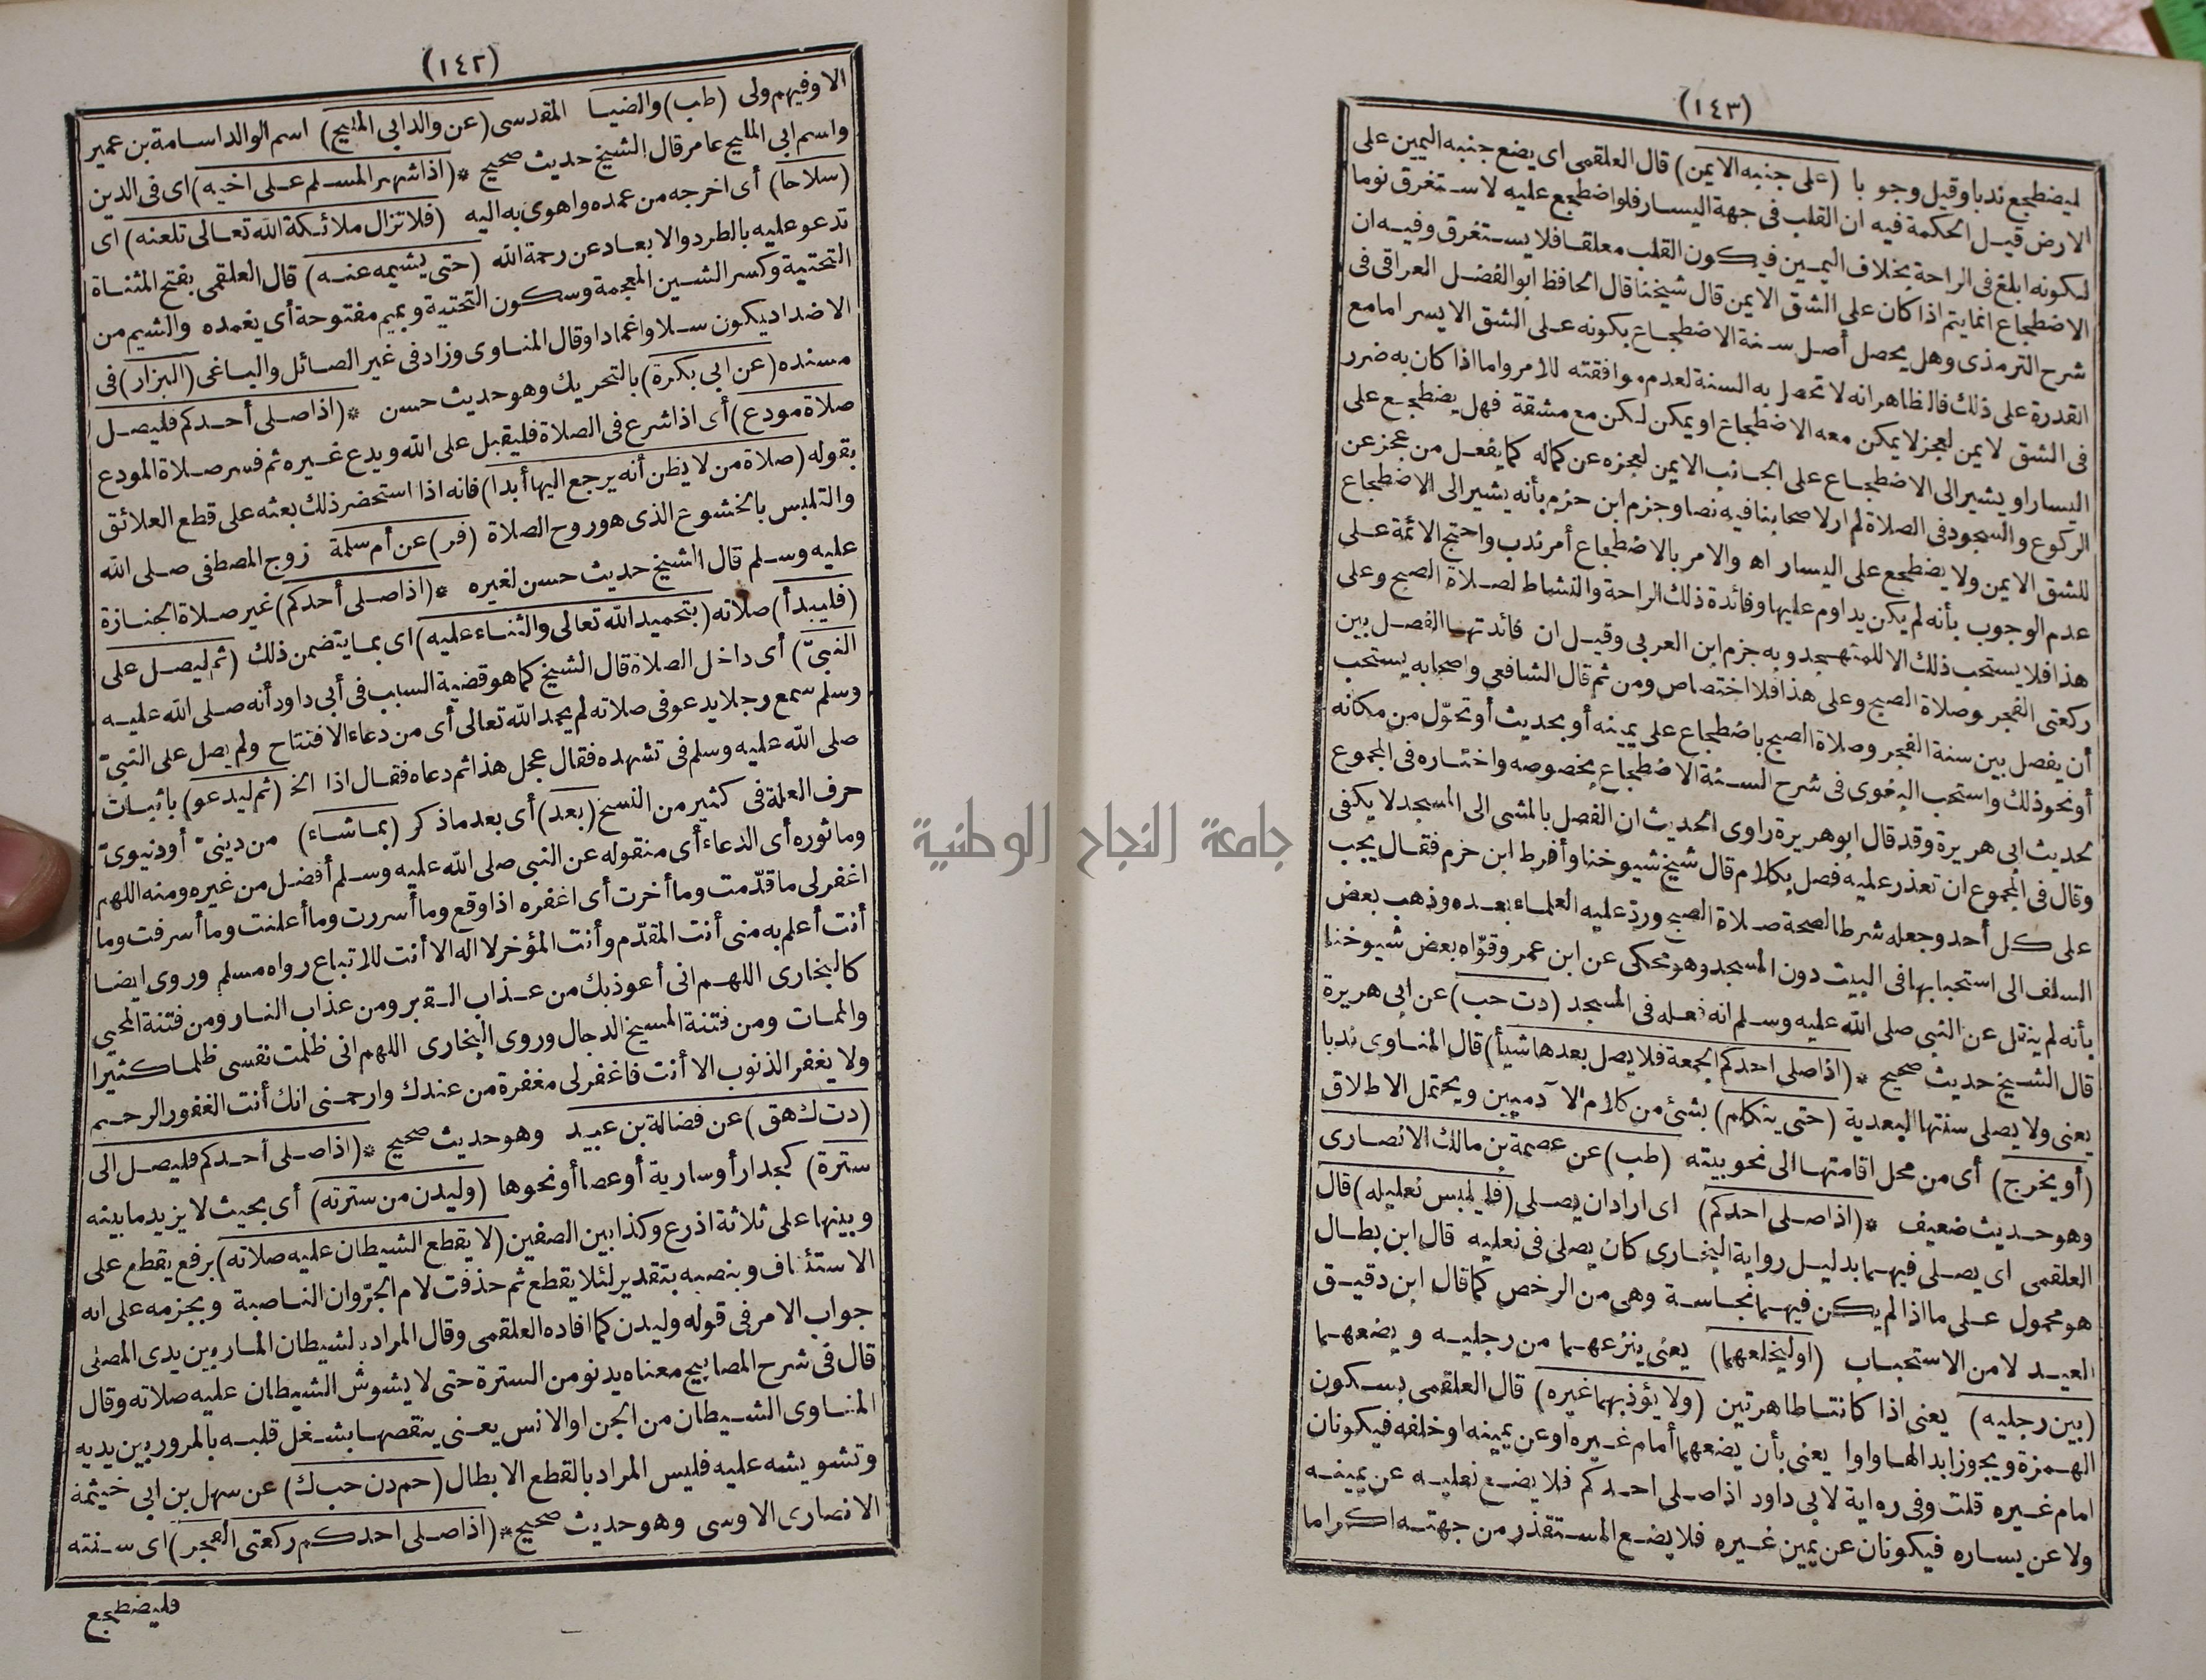 (١٤٢)
الاوفيهم ولى (طب) والضيا المقدسى (عن والد ابي المليح) اسم الوالد اسامة بن عمير
واسم ابي المليح عامر قال الشيخ حديث صحيح * (اذا شهر المسلم على اخيه) اى فى الدين
(سلاحا) أى اخرجه من غمده واهوى به اليه (فلا تزال ملائكة الله تعالى تلعنه) اى
تدعو عليه بالطرد والابعاد عن رحمة الله (حتى يشيمه عنه) قال العلقمى بفتح المثناة
التحتية وكسر الشين المعجمة وسكون التحتية وبميم مفتوحة أى يغمده والشيم من
الاضداد يكون سلا واغمادا وقال المناوى وزاد فى غير الصائل والباغى (البزار) فى
مسنده (عن ابي بكرة) بالتحريك وهو حديث حسن * (اذا صلى أحدكم فليصل
صلاة مودع) أى اذا شرع فى الصلاة فليقبل على الله ويدع غيره ثم فسر صلاة المودع
بقوله (صلاة من لا يظن أنه يرجع اليها أبدا) فانه اذا استحضر ذلك بعثه على قطع العلائق
والتلبس بالخشوع الذى هو روح الصلاة (فر) عن أم سلمة زوج المصطفى صلى الله
عليه وسلم قال الشيخ حديث حسن لغيره * (اذا صلى أحدكم) غير صلاة الجنازة
(فليبدأ) صلاته (بتحميد الله تعالى والثناء عليه) اى بما يتضمن ذلك (ثم ليصل على
النبىّ) أى داخل الصلاة قال الشيخ كما هو قضية السبب فى أبى داود أنه صلى الله عليه
وسلم سمع رجلا يدعو فى صلاته لم يجد الله تعالى أى من دعاء الافتتاح ولم يصل على النبىّ
صلى الله عليه وسلم فى تشهده فقال عجل هذا ثم دعاه فقال اذا الخ (ثم ليدعو) باثبات
حرف العلة فى كثير من النسخ (بعد) أى بعد ما ذكر (بما شاء) من دينىّ أو دنيوىّ
وماثوره أى الدعاء أى منقوله عن النبي صلى الله عليه وسلم أفضل من غيره ومنه اللهم
اغفر لى ما قدّمت وما أخرت أى اغفره اذا وقع وما أسررت وما أعلنت وما أسرفت وما
أنت أعلم به منى أنت المقدّم وأنت المؤخر لا اله الا أنت للاتباع رواه مسلم وروى ايضا
كالبخارى اللهم انى أعوذ بك من عذاب القبر ومن عذاب النار ومن فتنة المحيى
والممات ومن فتنة المسيخ الدجال وروى البخارى اللهم انى ظلمت نفسى ظلما كثيرا
ولا يغفر الذنوب الا أنت فاغفر لى مغفرة من عندك وارحمنى انك أنت الغفور الرحيم
(دت ك هق) عن فضالة بن عبيد وهو حديث صحيح * (اذا صلى أحدكم فليصل الى
سترة) كجدار أو سارية أو عصا أو نحوها (وليدن من سترته) أى بحيث لا يزيد ما بينه
وبينها على ثلاثة اذرع وكذا بين الصفين (لا يقطع الشيطان عليه صلاته) برفع يقطع على
الاستئناف وبنصبه بتقدير لئلا يقطع ثم حذفت لام الجرّ وان الناصبة وبجزمه على انه
جواب الامر فى قوله وليدن كما افاده العلقمى وقال المراد بالشيطان المار بين يدى المصلى
قال فى شرح المصابيح معناه يدنو من السترة حتى لا يشوش الشيطان عليه صلاته وقال
المناوى الشيطان من الجن او الانس يعنى ينقصها بشغل قلبه بالمرور بين يديه
وتشويشه عليه فليس المراد بالقطع الابطال (حم دن حب ك) عن سهل بن ابى خيثمة
الانصارى الاوسى وهو حديث صحيح * (اذا صلى احدكم ركعتى الفجر) اى سنته
فليضطجع
(١٤٣)
ليضطجع ندبا وقيل وجوبا (على جنبه الايمن) قال العلقمى اى يضع جنبه اليمين على
الارض قيل الحكمة فيه ان القلب فى جهة اليسار فلو اضطجع عليه لاستغرق نوما
لكونه ابلغ فى الراحة بخلاف اليمين فيكون القلب معلقا فلا يستغرق وفيه ان
الاضطجاع انما يتم اذا كان على الشق الايمن قال شيخنا قال الحافظ ابو الفضل العراقى فى
شرح الترمذى وهل يحصل أصل سنة الاضطجاع بكونه على الشق الايسر امامع
القدرة على ذلك فالظاهر انه لا تحصل به السنة لعدم موافقته للامر واما اذا كان به ضرر
فى الشق لايمن لعجز لا يمكن معه الاضطجاع او يمكن لكن مع مشقة فهل يضطجع على
اليسار او يشير الى الاضطجاع على الجانب الايمن لعجزه عن كماله كما يفعل من عجز عن
الركوع والسجود فى الصلاة لم ار لاصحابنا فيه نصا وجزم ابن حزم بأنه يشير الى الاضطجاع
للشق الايمن ولا يضطجع على اليسار اه والامر بالاضطجاع أمر ندب واحتج الائمة على
عدم الوجوب بأنه لم يكن يداوم عليها وفائدة ذلك الراحة والنشاط لصلاة الصبح وعلى
هذا فلا يستحب ذلك الا للمتهجد وبه جزم ابن العربى وقيل ان فائدتها الفصل بين
ركعتى الفجر وصلاة الصبح وعلى هذا فلا اختصاص ومن ثم قال الشافعي واصحابه يستحب
أن يفصل بين سنة الفجر وصلاة الصبح باضطجاع على يمينه أو بحديث أو تحوّل من مكانه
أو نحو ذلك واستحب البغوى فى شرح السنة الاضطجاع بخصوصه واختاره فى المجموع
لحديث ابى هريرة وقد قال ابو هريرة راوى الحديث ان الفصل بالمشى الى المسجد لا يكفى
وقال فى المجموع ان تعذر عليه فصل بكلام قال شيخ شيوخنا وأفرط ابن حزم فقال يجب
على كل أحد وجعله شرطا لصحة صلاة الصبح وردّ عليه العلماء بعده وذهب بعض
السلف الى استحبابها فى البيت دون المسجد وهو محكى عن ابن عمر وقوّاه بعض شيوخنا
بأنه لم ينقل عن النبي صلى الله عليه وسلم انه فعله فى المسجد (دت حب) عن ابى هريرة
قال الشيخ حديث صحيح * (اذا صلى احدكم الجمعة فلا يصل بعدها شيأ) قال المناوى ندبا
يعنى ولا يصلى سنتها البعدية (حتى يتكلم) بشئ من كلام الآدميين ويحتمل الاطلاق
(أو يخرج) أى من محل اقامتها الى نحو بيته (طب) عن عصمة بن مالك الانصارى
وهو حديث ضعيف * (اذا صلى احدكم) اى اراد ان يصلى (فليلبس نعليه) قال
العلقمى اى يصلى فيهما بدليل رواية البخارى كان يصلى فى نعليه قال ابن بطال
هو محمول على ما اذا لم يكن فيهما نجاسة وهى من الرخص كما قال ابن دقيق
العيد لا من الاستحباب (اوليخلعهما) يعنى ينزعهما من رجليه ويضعهما
(بين رجليه) يعنى اذا كانتا طاهرتين (ولا يؤذ بهما غيره) قال العلقمى بسكون
الهمزة ويجوز ابدالها واوا يعنى بأن يضعهما أمام غيره او عن يمينه او خلفه فيكونان
امام غيره قلت وفى رواية لابى داود اذا صلى احدكم فلا يضع نعليه عن يمينه
ولا عن يساره فيكونان عن يمين غيره فلا يضع المستقذر من جهته اكراما
جامعة النجاح الوطنية